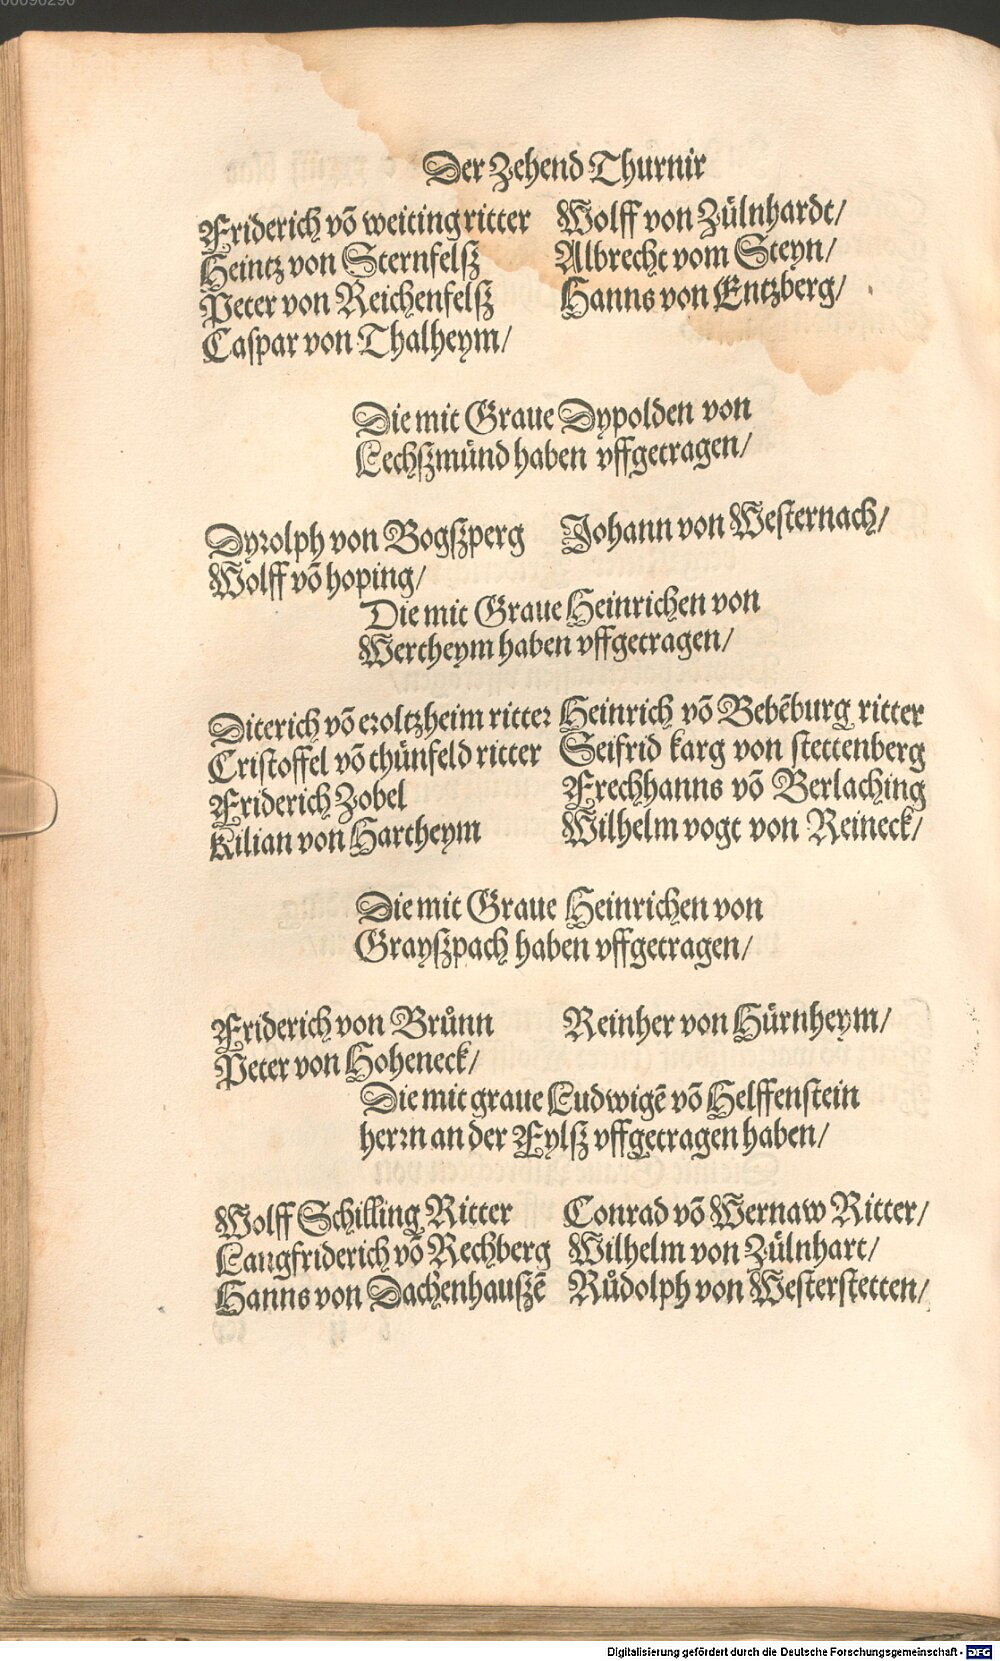 00090290
Der Zehend Thurnir
Friderich võ weiting ritter
Heintz von Sternfelsz
Peter von Reichenfelsz
Caspar von Thalheym/
Wolff von Zülnhardt/
Albrecht vom Steyn/
Hanns von Entzberg/
Die mit Graue Dypolden von
Lechszmünd haben vffgetragen/
Dyrolph von Bogszperg
Wolff võ hoping/
Johann von Westernach/
Die mit Graue Heinrichen von
Wertheym haben vffgetragen/
Diterich võ eroltzheim ritter
Cristoffel võ thünfeld ritter
Friderich Zobel
Kilian von Hartheym
Heinrich võ Bebẽburg ritter
Seifrid karg von stettenberg
Frechhanns võ Berlaching
Wilhelm vogt von Reineck/
Die mit Graue Heinrichen von
Grayszpach haben vffgetragen/
Friderich von Brůnn
Peter von Hoheneck/
Reinher von Hürnheym/
Die mit graue Ludwigẽ võ Helffenstein
herrn an der Fylsz vffgetragen haben/
Wolff Schilling Ritter
Langfriderich võ Rechberg
Hanns von Dachenhauszẽ
Conrad võ Wernaw Ritter/
Wilhelm von Zülnhart/
Růdolph von Westerstetten/
Digitalisierung gefördert durch die Deutsche Forschungsgemeinschaft - DFG